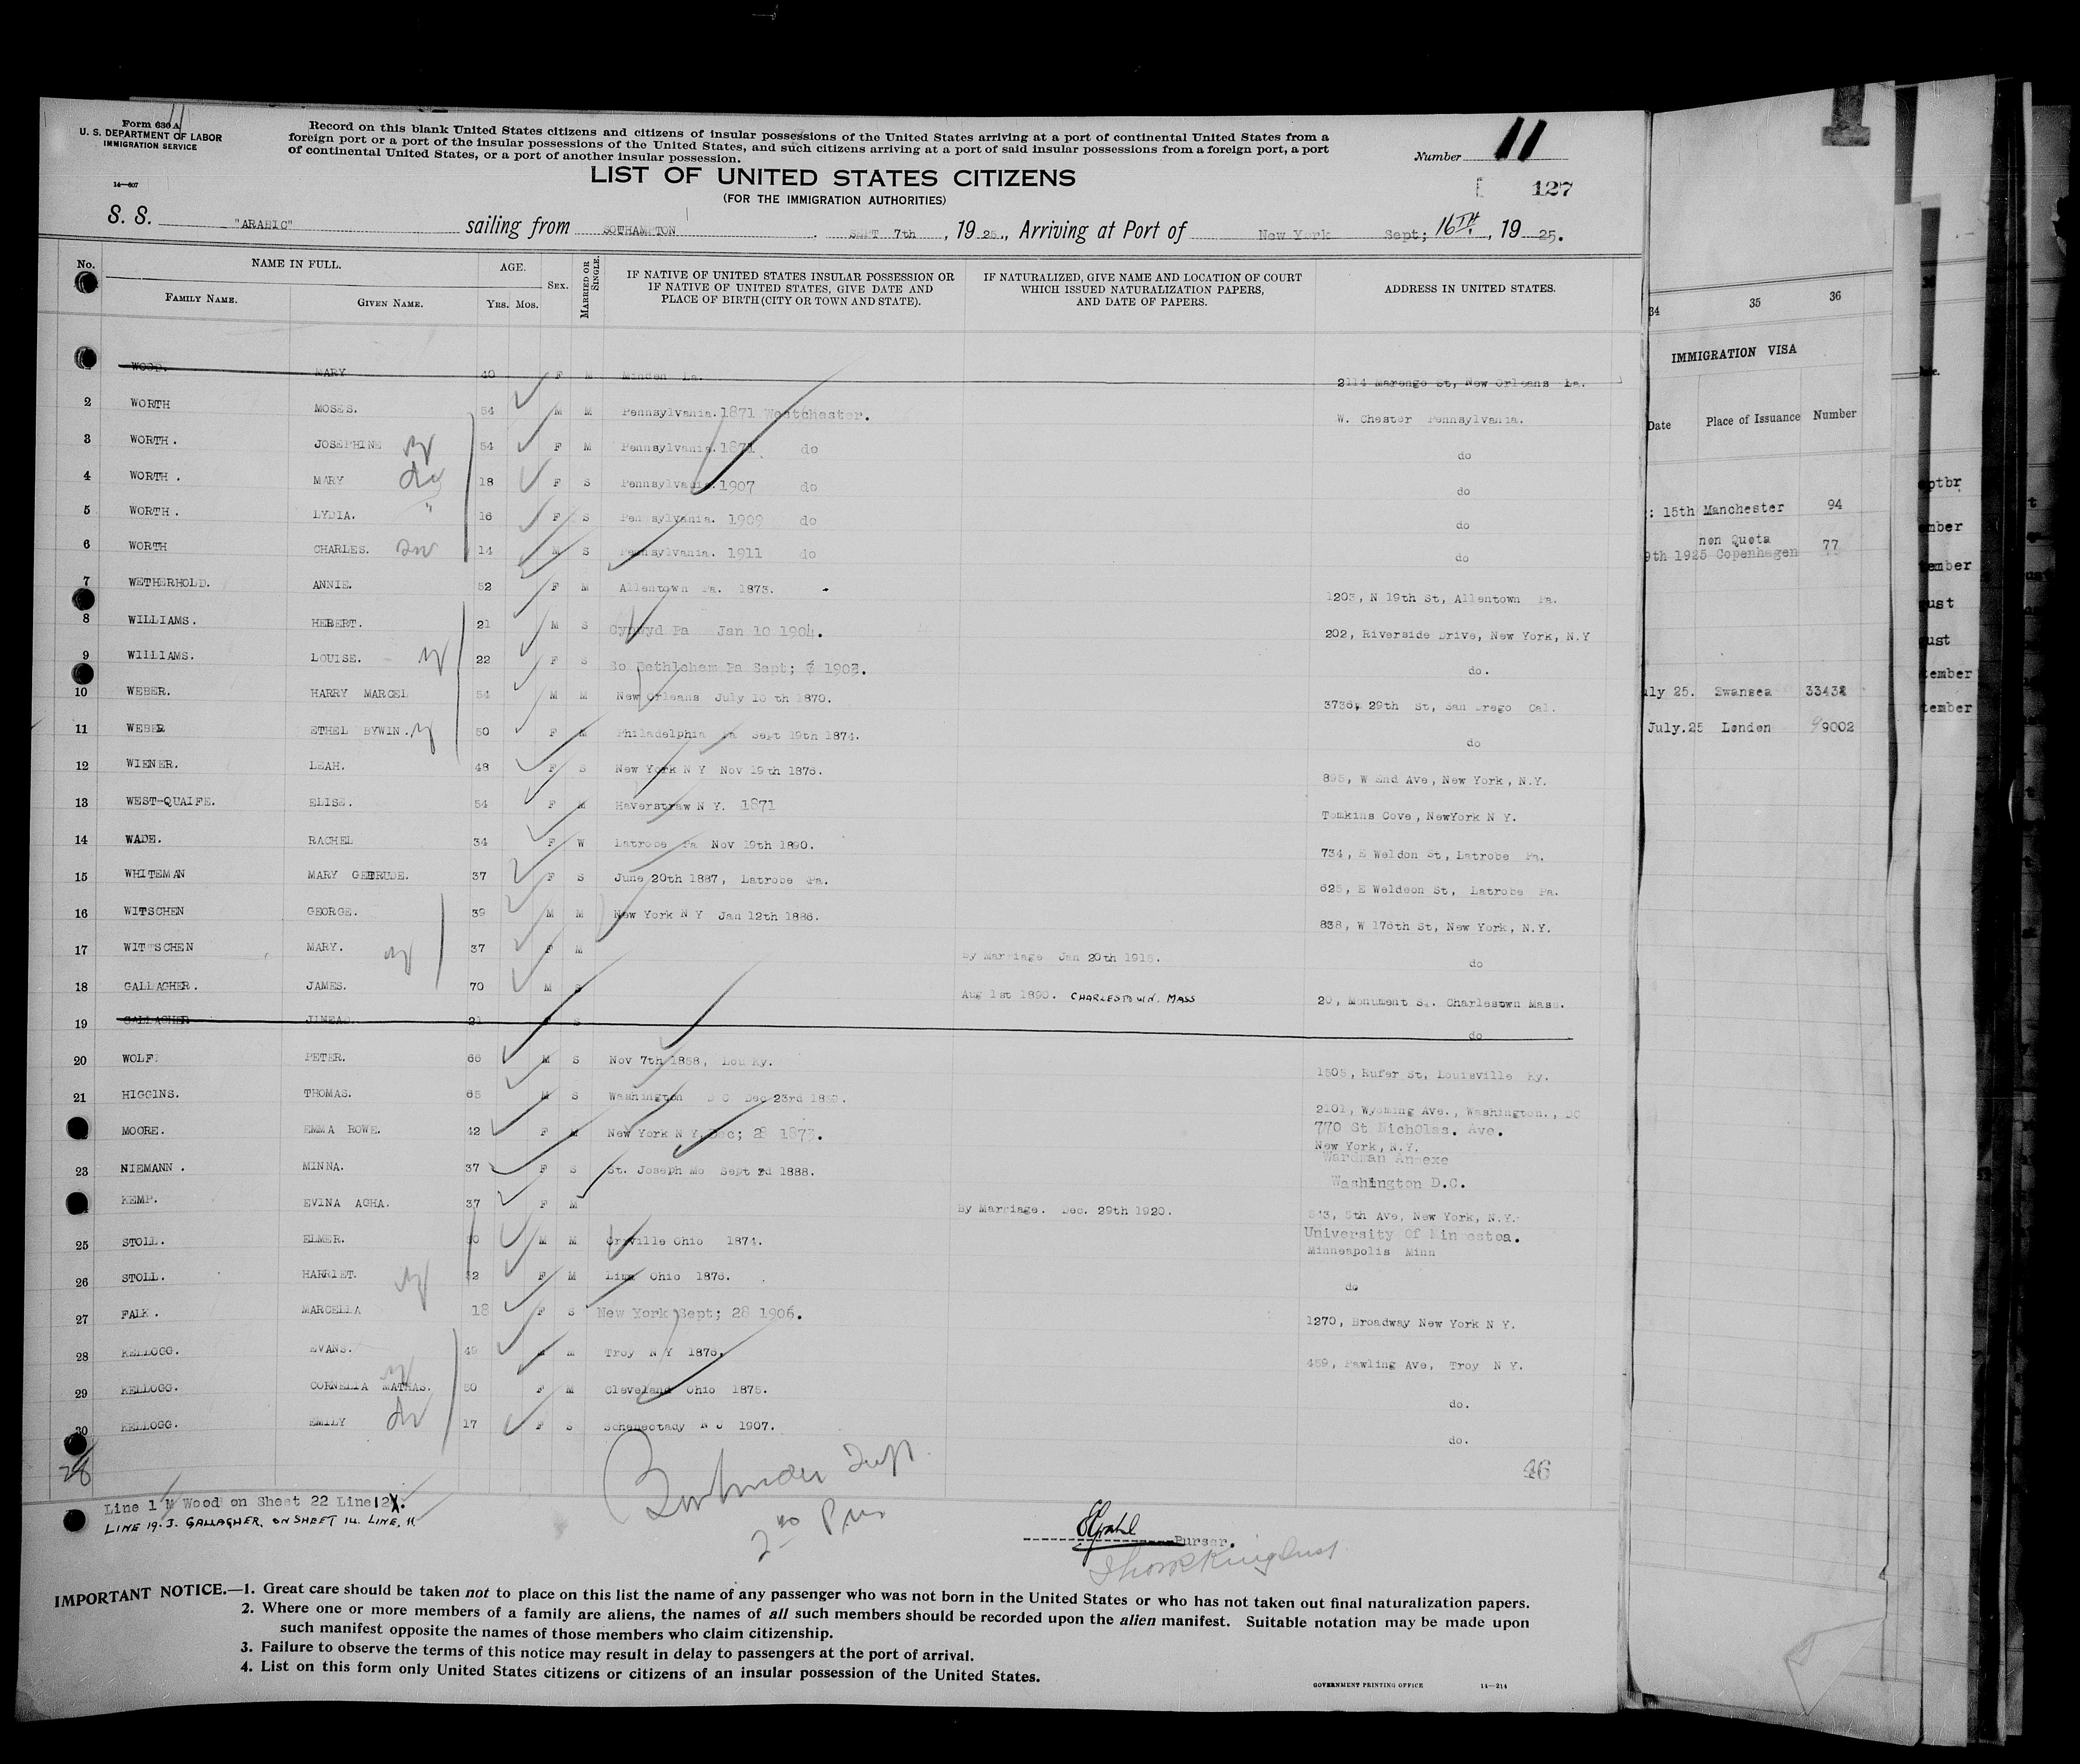 Form 630 A
U. S. DEPARTMENT OF LABOR
IMMIGRATION SERVICE
14—607
Record on this blank United States citizens and citizens of insular possessions of the United States arriving at a port of continental United States from a
foreign port or a port of the insular possessions of the United States, and such citizens arriving at a port of said insular possessions from a foreign port, a port
of continental United States, or a port of another insular possession.
Number 11
127
LIST OF UNITED STATES CITIZENS
(FOR THE IMMIGRATION AUTHORITIES)
S. S. "ARABIC" sailing from SOTHAMPTON SEPT 7th, 1925., Arriving at Port of New York Sept; 16TH, 1925.
No. NAME IN FULL. AGE. SEX. MARRIED OR SINGLE. IF NATIVE OF UNITED STATES INSULAR POSSESSION OR IF NATIVE OF UNITED STATES, GIVE DATE AND PLACE OF BIRTH (CITY OR TOWN AND STATE). IF NATURALIZED, GIVE NAME AND LOCATION OF COURT WHICH ISSUED NATURALIZATION PAPERS, AND DATE OF PAPERS. ADDRESS IN UNITED STATES.
FAMILY NAME. GIVEN NAME. YRS. MOS.
WOOD. MARY 40 F M Minden La. 2114 Marengo St, New Orleans La.
2 WORTH MOSES. 54 M M Pennsylvania. 1871 Westchester. W. Chester Pennsylvania.
3 WORTH. JOSEPHINE 54 F M Pennsylvania. 1871 do do
4 WORTH. MARY 18 F S Pennsylvania. 1907 do do
5 WORTH. LYDIA. 16 F S Pennsylvania. 1909 do do
6 WORTH CHARLES. 14 M S Pennsylvania. 1911 do do
7 WETHERHOLD. ANNIE. 52 F M Allentown Pa. 1873. 1203, N 19th St, Allentown Pa.
8 WILLIAMS. HEBERT. 21 M S Cynwyd Pa Jan 10 1904. 202, Riverside Drive, New York, N.Y
9 WILLIAMS. LOUISE. 22 F S So Bethlehem Pa Sept; 1902. do.
10 WEBER. HARRY MARCEL 54 M M New Orleans July 10 th 1870. 3736, 29th St, San Drego Cal.
11 WEBER ETHEL BYWIN. 50 F M Philadelphia Pa Sept 19th 1874. do
12 WIENER. LEAH. 48 F S New York N Y Nov 19th 1876. 895, W End Ave, New York, N.Y.
13 WEST-QUAIFE. ELISE. 54 F M Haverstraw N Y. 1871 Tomkins Cove, NewYork N Y.
14 WADE. RACHEL 34 F W Latrobe Pa Nov 19th 1890. 734, E Weldon St, Latrobe Pa.
15 WHITEMAN MARY GETRUDE. 37 F S June 20th 1887, Latrobe Pa. 625, E Weldeon St, Latrobe Pa.
16 WITSCHEN GEORGE. 39 M M New York N Y Jan 12th 1886. 838, W 176th St, New York, N.Y.
17 WITTSCHEN MARY. 37 F M By Marriage Jan 20th 1915. do
18 GALLAGHER. JAMES. 70 M S Aug 1st 1890. CHARLESTOWN. MASS 20, Monument St. Charlestown Mass.
19 GALLAGHER 21 S do
20 WOLF PETER. 66 M S Nov 7th 1858, Lou Ky. 1505, Rufer St, Louisville Ky.
21 HIGGINS. THOMAS. 65 M S Washington D C Dec 23rd 2101, Wyoming Ave., Washington., DC
MOORE. EMMA ROWE. 42 F M New York N Y. Dec; 28 1873. 770 St Nicholas. Ave.
New York, N.Y.
23 NIEMANN. MINNA. 37 F S St. Joseph Mo Sept 2d 1888. Wardman Annexe
Washington D.C.
KEMP. EVINA AGHA. 37 F M By Marriage. Dec. 29th 1920. 543, 5th Ave, New York, N.Y.
25 STOLL. ELMER. 50 M M Orrville Ohio 1874. University Of Minnestoa.
Minneapolis Minn
26 STOLL. HARRIET. 52 F M Lima Ohio 1876. do
27 FALK. MARCELLA 18 F S New York Sept; 28 1906. 1270, Broadway New York N Y.
28 KELLOGG. EVANS. 49 M M Troy N Y 1876. 459, Pawling Ave, Troy N Y.
29 KELLOGG. CORNELIA MATHAS. 50 F M Cleveland Ohio 1875. do.
30 KELLOGG. EMILY 17 F S Schenectady N J 1907. do.
28
46
Line 1 M Wood on Sheet 22 Line 12.
LINE 19. J. GALLAGHER, ON SHEET 14. LINE, 11
Purser.
IMPORTANT NOTICE.—1. Great care should be taken not to place on this list the name of any passenger who was not born in the United States or who has not taken out final naturalization papers.
2. Where one or more members of a family are aliens, the names of all such members should be recorded upon the alien manifest. Suitable notation may be made upon
such manifest opposite the names of those members who claim citizenship.
3. Failure to observe the terms of this notice may result in delay to passengers at the port of arrival.
4. List on this form only United States citizens or citizens of an insular possession of the United States.
GOVERNMENT PRINTING OFFICE 14—214
34 35 36
IMMIGRATION VISA
Date Place of Issuance Number
15th Manchester 94
non Quota
9th 1925 Copenhagen 77
July 25. Swansea 33434
July.25 London 99002